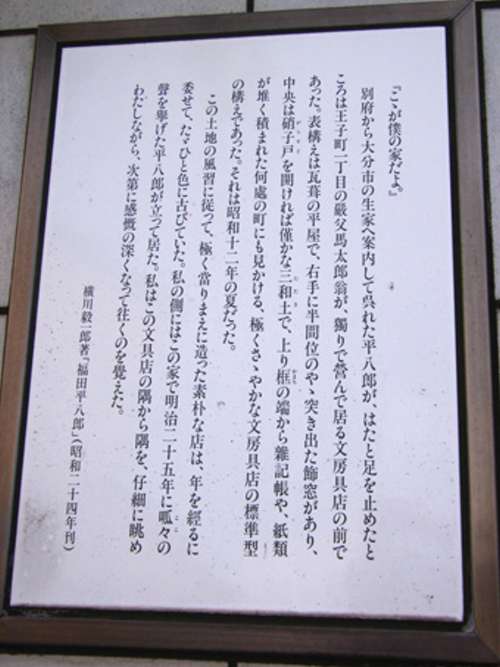 『こゝが僕の家だよ』
別府から大分市の生家へ案内して呉れた平八郎が、はたと足を止めたと
ころは王子町一丁目の嚴父馬太郎翁が、獨りで營んで居る文房具店の前で
あった。表構えは瓦葺の平屋で、右手に半間位のやゝ突き出た飾窓があり、
中央は硝子戸を開ければ僅かな三和土で、上り框の端から雜記帳や、紙類
が堆く積まれた何處の町にも見かける、極くさゝやかな文房具店の標準型
の構えであった。それは昭和十二年の夏だった。
この土地の風習に從って、極く當りまえに造った素朴な店は、年を經るに
委せて、たゞひと色に古びていた。私の側にはこの家で明治二十五年に呱々の
聲を擧げた平八郎が立って居た。私はこの文具店の隅から隅を、仔細に眺め
わたしながら、次第に感慨の深くなって往くのを覺えた。
横川毅一郎著『福田平八郎』（昭和二十四年刊）